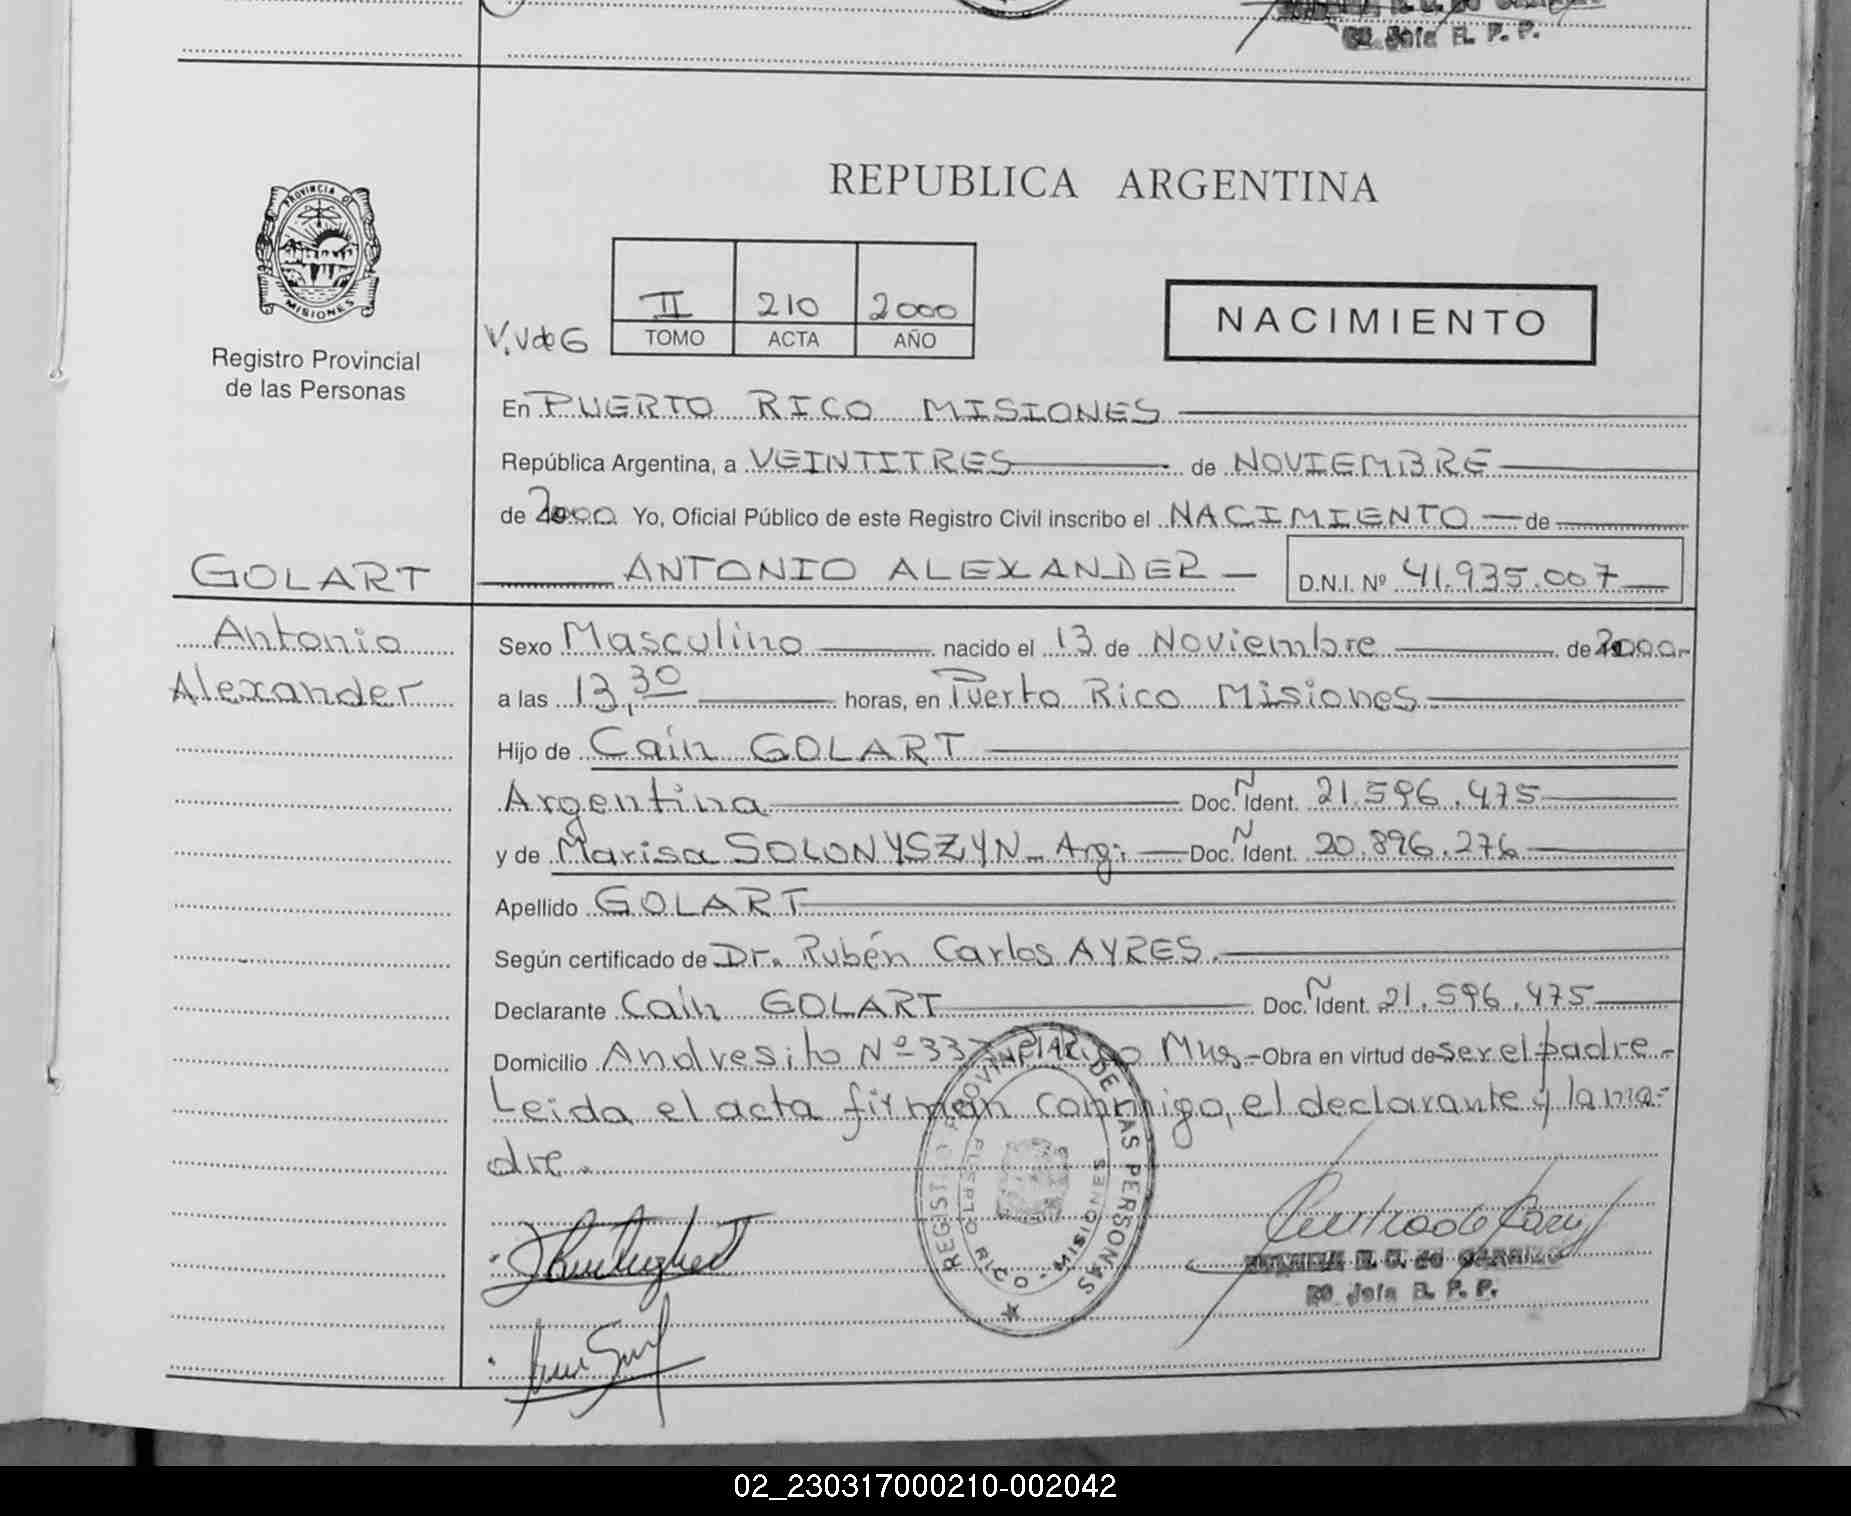 2º Jefe R. P. P.
REPUBLICA ARGENTINA
PROVINCIA DE
MISIONES
II 210 2000
V.V de G TOMO ACTA AÑO
NACIMIENTO
Registro Provincial
de las Personas
En PUERTO RICO MISIONES
República Argentina, a VEINTITRES de NOVIEMBRE
de 2000 Yo, Oficial Público de este Registro Civil inscribo el NACIMIENTO de
GOLART ANTONIO ALEXANDER D.N.I. Nº 41.935.007
Antonio Sexo Masculino nacido el 13 de Noviembre de 2000.-
Alexander a las 13,30 horas, en Puerto Rico Misiones
Hijo de Caín GOLART
Argentina Doc. Ñ Ident. 21.596.475
y de Marisa SOLONYSZYN - Arg: Doc. Ñ Ident. 20.896.276
Apellido GOLART
Según certificado de Dr. Rubén Carlos AYRES.
Declarante Caín GOLART Doc. Ñ Ident. 21.596.475
Domicilio Andresito Nº 337 Pto Rico Mns.- Obra en virtud de ser el padre.-
Leida el acta firman conmigo, el declarante y la ma-
dre.
REGISTRO PROVINCIAL DE LAS PERSONAS
PUERTO RICO - MISIONES
R. G. de CARRIZO
2º Jefe R. P. P.
02_230317000210-002042